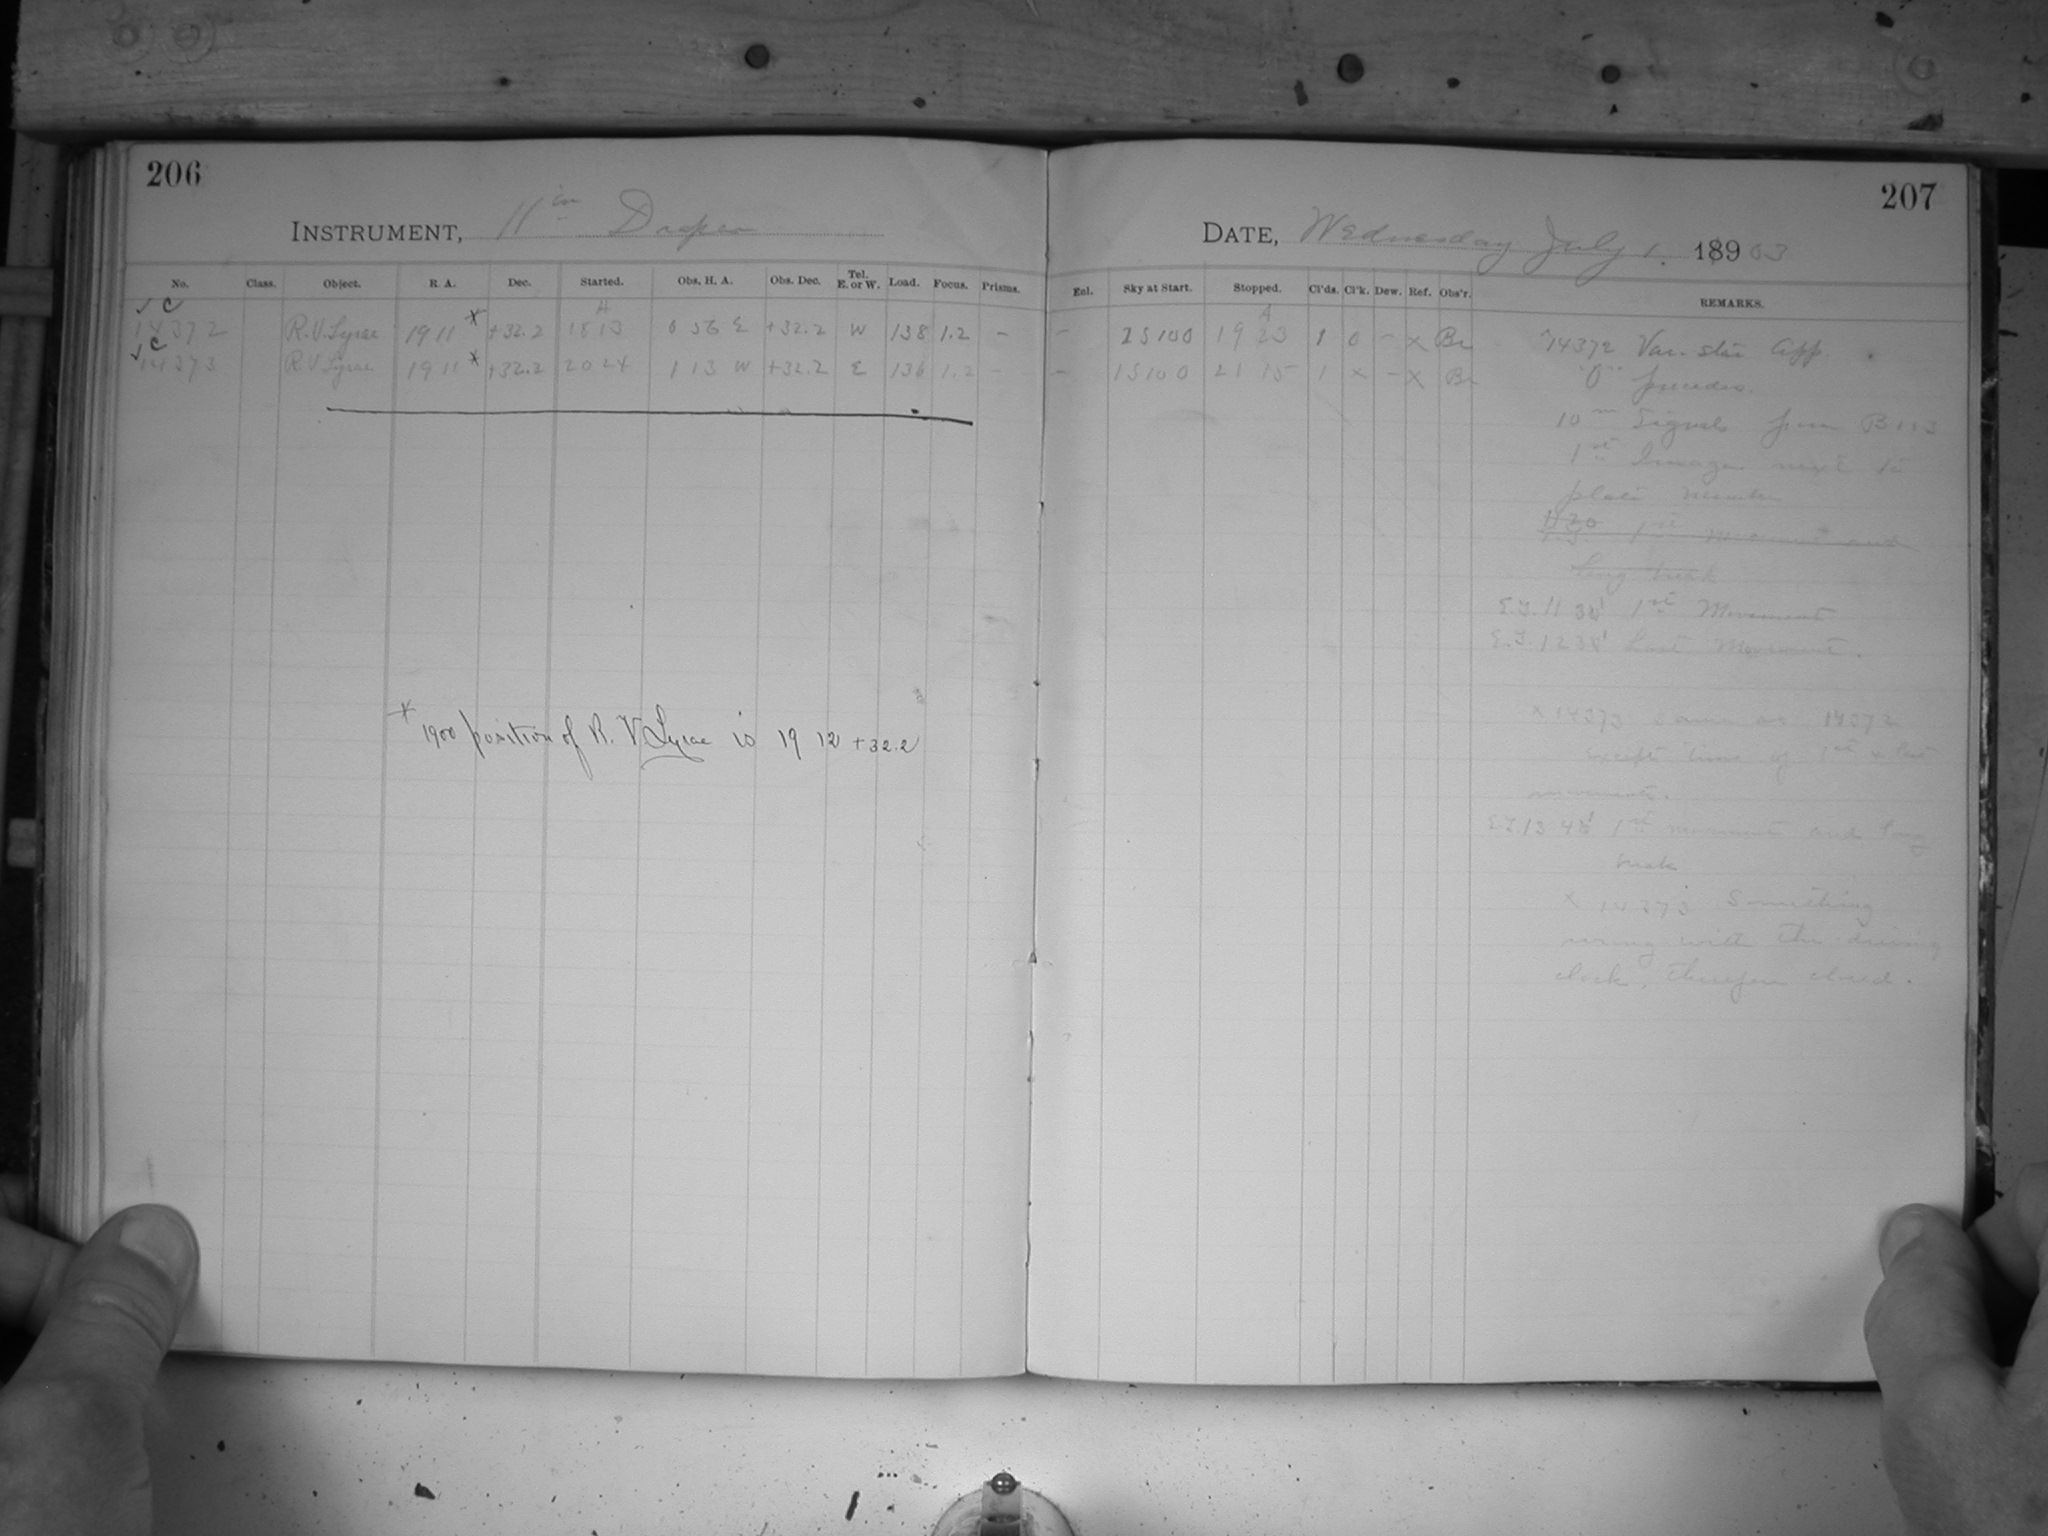 206
INSTRUMENT, 11 in Draper
No. Class. Object. R. A. Dec. Started. Obs. H. A. Obs. Dec. Tel. E. or W. Load. Focus. Prisms.
✓ C
14372 R.V. Lyrae 19 11 * +32.2 18 13 0 56 E +32.2 W 138 1.2 –
✓ C
14373 R.V Lyrae 19 11 * +32.2 20 24 1 13 W +32.2 E 136 1.2 –
* 1900 position of R. V. Lyrae is 19 12 +32.2
207
DATE, Wednesday July 1. 189 03
Enl. Sky at Start. Stopped. Cl'ds. Cl'k. Dew. Ref. Obs'r. REMARKS.
– 15100 19 23 1 0 – x Br x 14372 Var. star app.
– 15100 21 15 1 x – x Br "0" precedes.
10 m Signals from
1st Image next to
plate number
1st Movement and
long break
E.T. 11 1st Movement
E.T. 12 Last Movement.
x 14373 same as 14372
except time of 1st & last
movements.
E.T. 13 1st movement and long
break
x 14373 Something
wrong with the driving
clock, therefore closed.